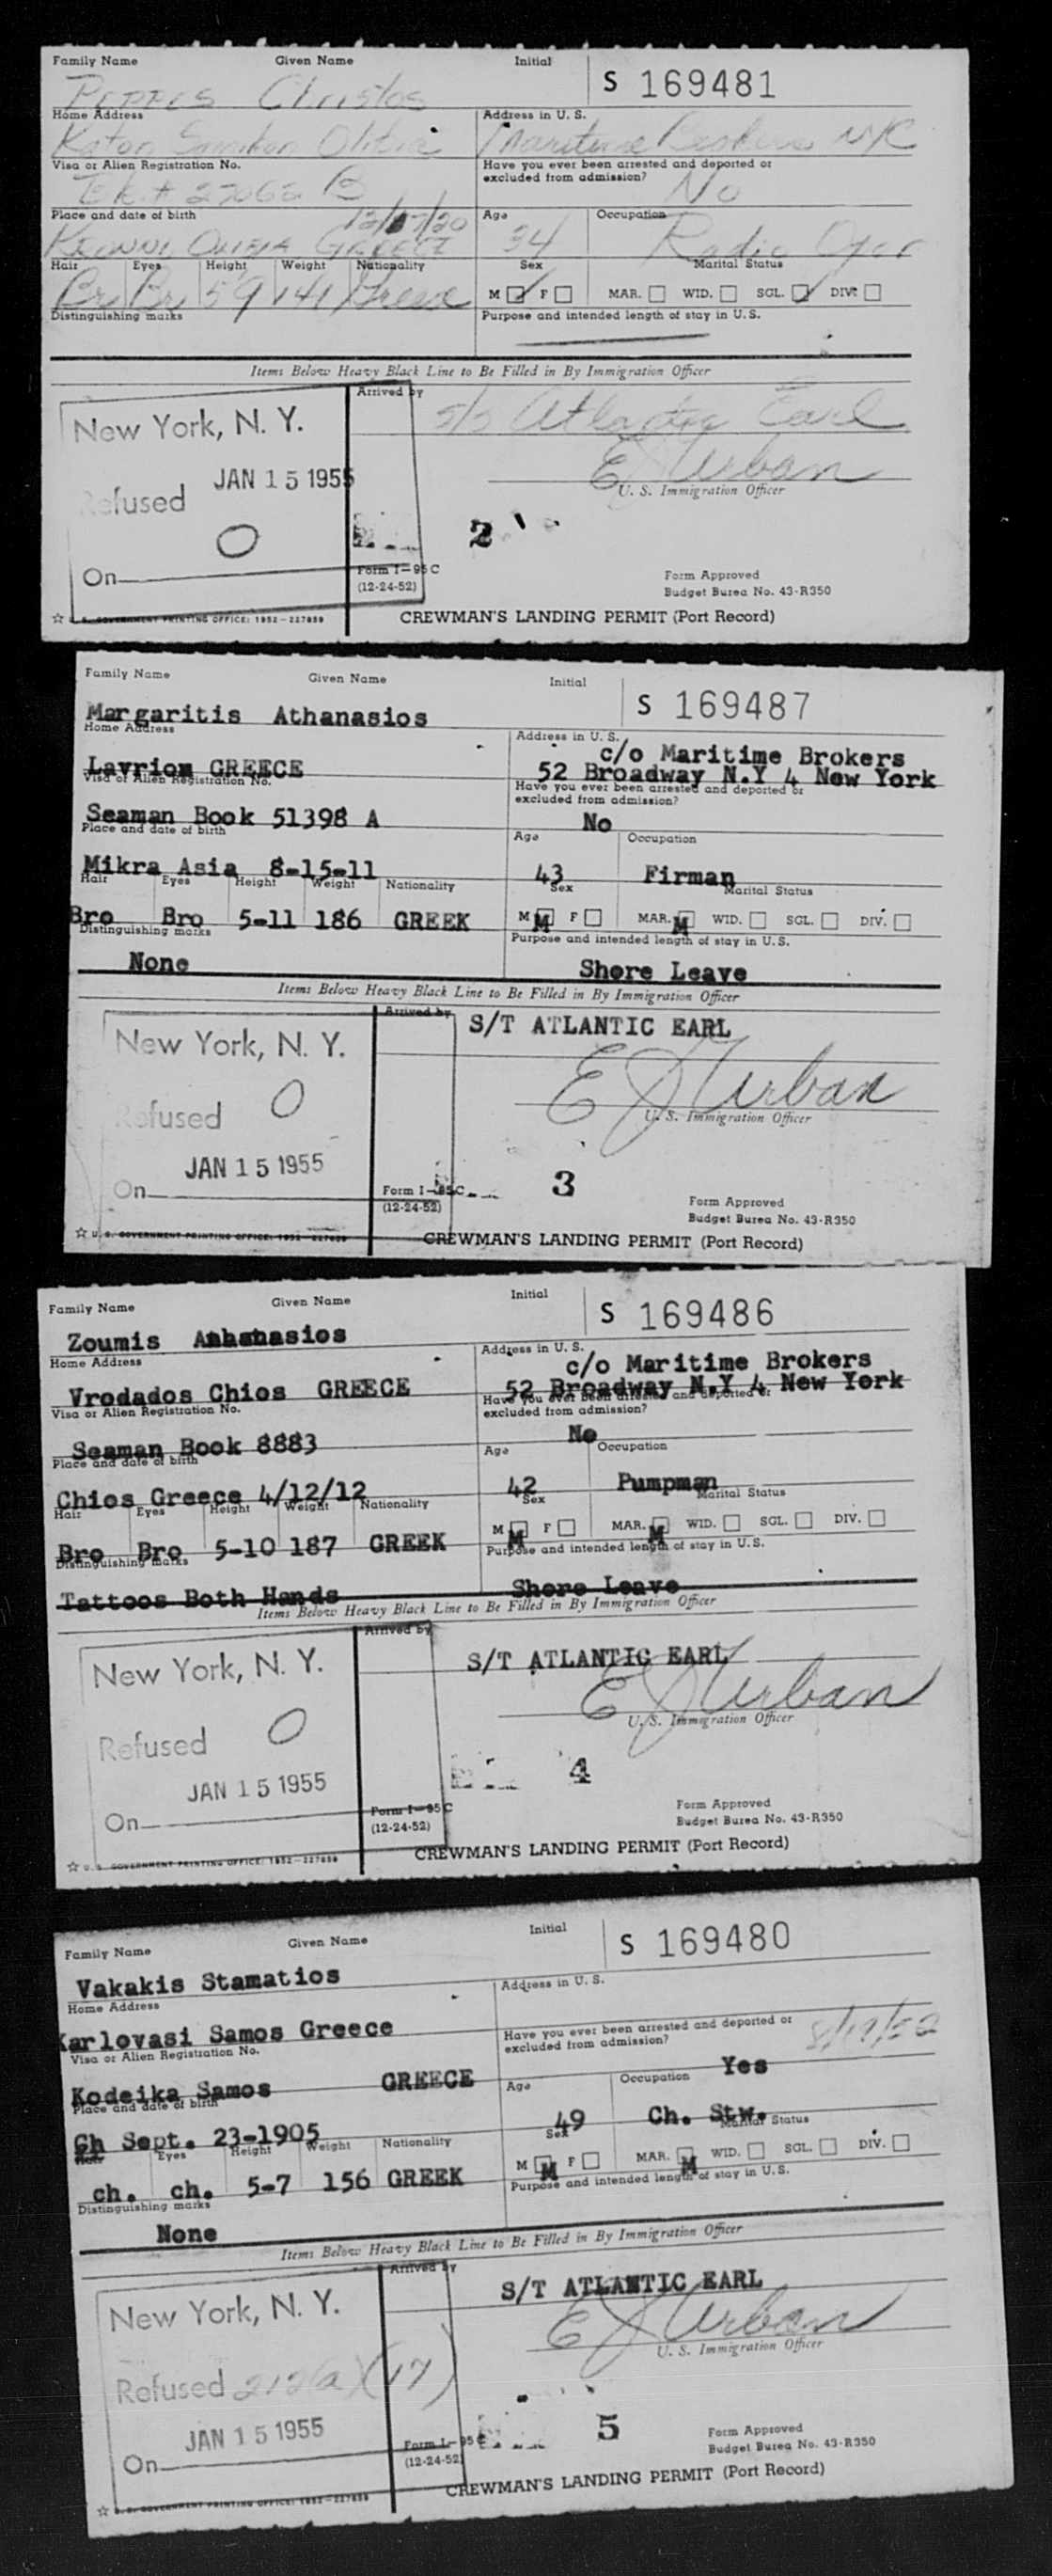 Family Name Given Name Initial S 169481
Christos
Home Address Address in U. S.
Maritime NYC
Visa or Alien Registration No. Have you ever been arrested and deported or
excluded from admission?
No
Place and date of birth Age Occupation
GREECE 34 Radio Oper
Hair Eyes Height Weight Nationality Sex Marital Status
Br Br 5 9 141 Greece M F MAR. WID. SGL. DIV.
Distinguishing marks Purpose and intended length of stay in U. S.
Items Below Heavy Black Line to Be Filled in By Immigration Officer
Arrived by s/s Atlantic Earl
New York, N. Y.
E J Urban
JAN 15 1955 U. S. Immigration Officer
Refused
0 2
On
Form I-95 C Form Approved
(12-24-52) Budget Bureau No. 43-R350
☆ U. S. GOVERNMENT PRINTING OFFICE: 1952-227859 CREWMAN'S LANDING PERMIT (Port Record)
Family Name Given Name Initial S 169487
Margaritis Athanasios
Home Address Address in U. S.
c/o Maritime Brokers
Lavrion GREECE 52 Broadway N.Y 4 New York
Visa or Alien Registration No. Have you ever been arrested and deported or
excluded from admission?
Seaman Book 51398 A No
Place and date of birth Age Occupation
Mikra Asia 8-15-11 43 Firman
Hair Eyes Height Weight Nationality Sex Marital Status
Bro Bro 5-11 186 GREEK M M F MAR. M WID. SGL. DIV.
Distinguishing marks Purpose and intended length of stay in U. S.
None Shore Leave
Items Below Heavy Black Line to Be Filled in By Immigration Officer
Arrived by S/T ATLANTIC EARL
New York, N. Y.
E J Urban
Refused 0 U. S. Immigration Officer
JAN 15 1955
On 3
Form I-95 C Form Approved
(12-24-52) Budget Bureau No. 43-R350
☆ U. S. GOVERNMENT PRINTING OFFICE: 1952-227859 CREWMAN'S LANDING PERMIT (Port Record)
Family Name Given Name Initial S 169486
Zoumis Athanasios
Home Address Address in U. S.
c/o Maritime Brokers
Vrodados Chios GREECE 52 Broadway N.Y 4 New York
Visa or Alien Registration No. Have you ever been arrested and deported or
excluded from admission?
Seaman Book 8883 No
Place and date of birth Age Occupation
Chios Greece 4/12/12 42 Pumpman
Hair Eyes Height Weight Nationality Sex Marital Status
Bro Bro 5-10 187 GREEK M M F MAR. M WID. SGL. DIV.
Distinguishing marks Purpose and intended length of stay in U. S.
Tattoos Both Hands Shore Leave
Items Below Heavy Black Line to Be Filled in By Immigration Officer
Arrived by S/T ATLANTIC EARL
New York, N. Y.
E J Urban
U. S. Immigration Officer
Refused 0
JAN 15 1955 4
On
Form I-95 C Form Approved
(12-24-52) Budget Bureau No. 43-R350
☆ U. S. GOVERNMENT PRINTING OFFICE: 1952-227859 CREWMAN'S LANDING PERMIT (Port Record)
Family Name Given Name Initial S 169480
Vakakis Stamatios
Home Address Address in U. S.
Karlovasi Samos Greece
Visa or Alien Registration No. Have you ever been arrested and deported or
excluded from admission? 8/19/52
Kodeika Samos GREECE Yes
Place and date of birth Age Occupation
Ch Sept. 23-1905 49 Ch. Stw.
Hair Eyes Height Weight Nationality Sex Marital Status
ch. ch. 5-7 156 GREEK M M F MAR. M WID. SGL. DIV.
Distinguishing marks Purpose and intended length of stay in U. S.
None
Items Below Heavy Black Line to Be Filled in By Immigration Officer
Arrived by S/T ATLANTIC EARL
New York, N. Y.
E J Urban
U. S. Immigration Officer
Refused 212(a)(17)
JAN 15 1955 5
On
Form I-95 C Form Approved
(12-24-52) Budget Bureau No. 43-R350
☆ U. S. GOVERNMENT PRINTING OFFICE: 1952-227859 CREWMAN'S LANDING PERMIT (Port Record)